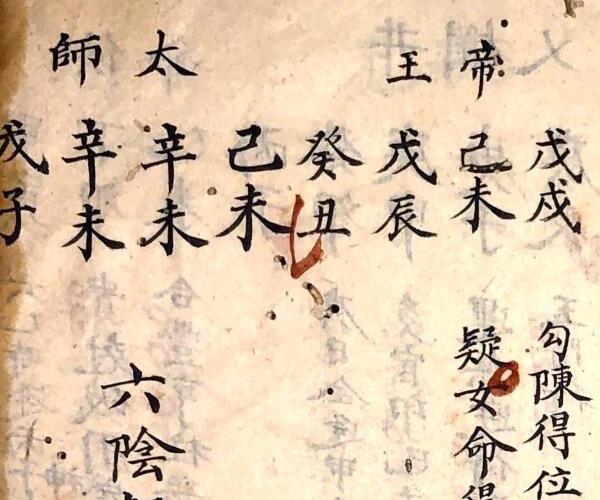 帝王
戊戌
己未
戊辰
癸丑
勾陳得位
疑女命得
太師
己未
辛未
辛未
戊子
六陰